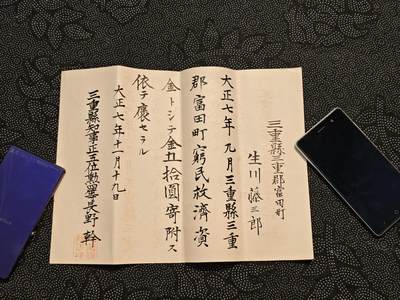 三重縣三重郡富田町
生川藤三郎
大正七年九月三重縣三重
郡富田町窮民救濟資
金トシテ金五拾圓寄附ス
依テ褒セラル
大正七年十一月十九日
三重縣知事正五位勲四等長野幹